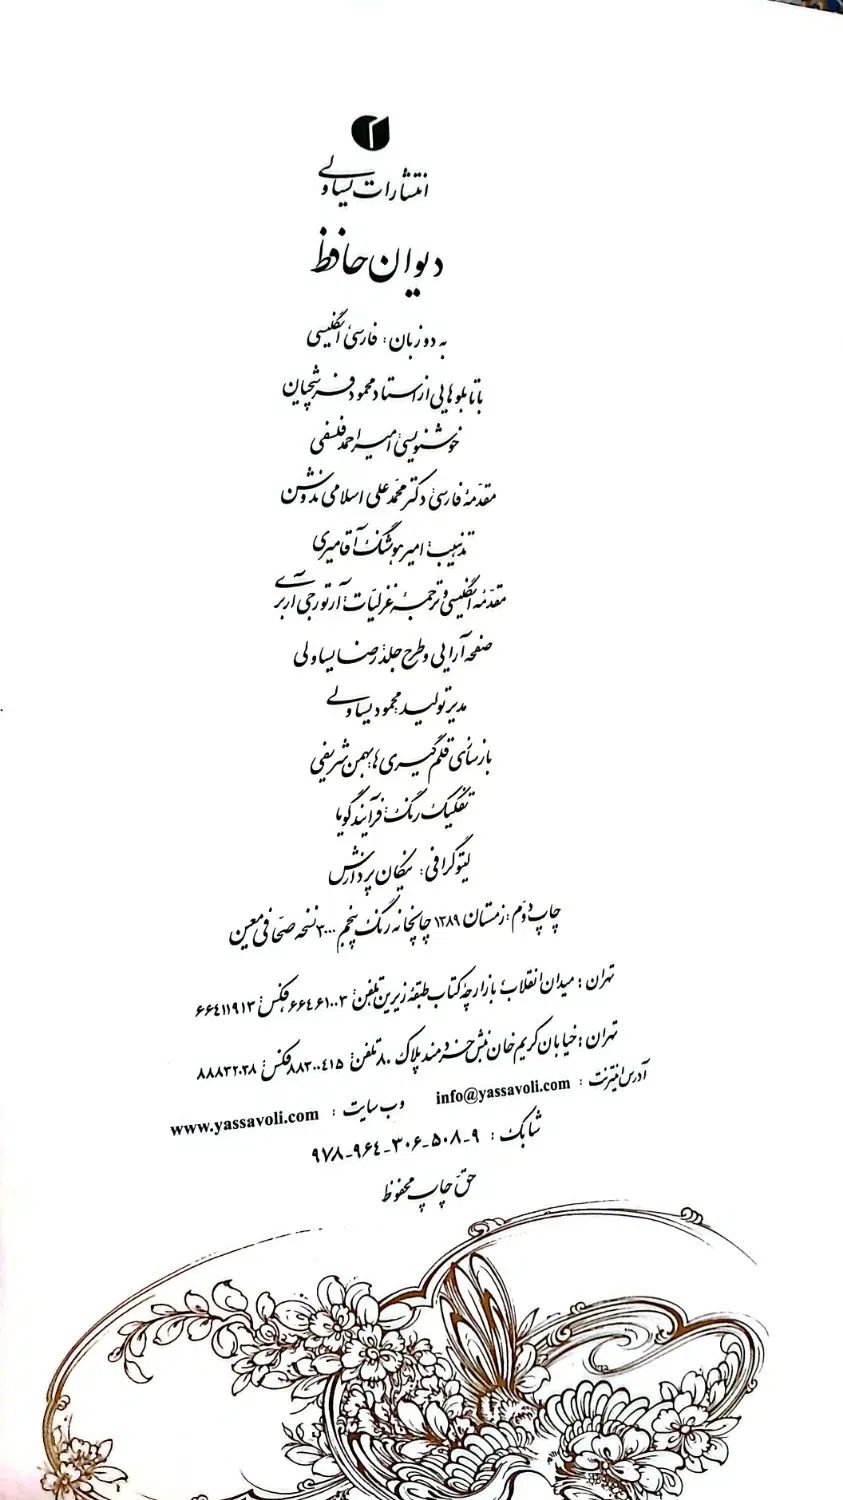 انتشارات یساولی
دیوان حافظ
به دو زبان: فارسی، انگلیسی
با تابلوهایی از استاد محمود فرشچیان
خوشنویسی: امیراحمد فلسفی
مقدّمهٔ فارسی: دکتر محمّدعلی اسلامی ندوشن
تذهیب: امیرهوشنگ آقامیری
مقدّمهٔ انگلیسی و ترجمهٔ غزلیّات: آرتور جی آربری
صفحه‌آرایی و طرح جلد: رضا یساولی
مدیر تولید: محمود یساولی
بازسازی قلم‌گیری‌ها: بهمن شریفی
تفکیک رنگ: فرآیند گویا
لیتوگرافی: نیکان پردازش
چاپ دوّم: زمستان ۱۳۸۹ چاپخانه رنگ پنجم ۳۰۰۰ نسخه صحّافی معین
تهران: میدان انقلاب، بازارچهٔ کتاب، طبقه زیرین، تلفن: ۶۶۴۶۱۰۰۳، فکس: ۶۶۴۱۱۹۱۳
تهران: خیابان کریم خان، نبش خردمند، پلاک ۸۰ تلفن: ۸۸۳۰۰۴۱۵ فکس: ۸۸۸۳۲۰۳۸
آدرس اینترنت: info@yassavoli.com وب سایت: www.yassavoli.com
شابک: ۹-۵۰۸-۳۰۶-۹۶۴-۹۷۸
حقّ چاپ محفوظ